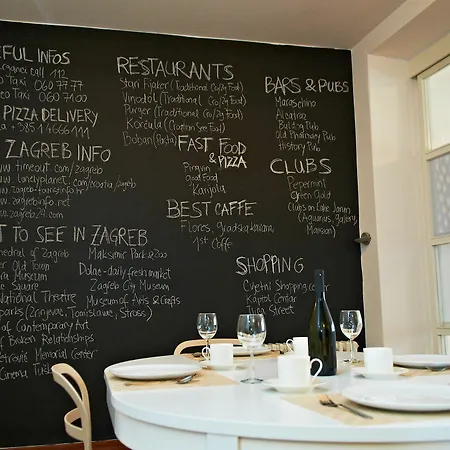 EFUL INFOS
call 112
Taxi 060 7777
eo Taxi 060 7100
PIZZA DELIVERY
a +385 1 4666 111
ZAGREB INFO
www.timeout.com/zagreb
www.lonelyplanet.com/croatia/zagreb
www.zagreb-touristinfo.hr
www.zagrebinfo.net
www.zagreb24.com
T TO SEE IN ZAGREB
hedral of Zagreb
er Old Town
ra Museum
e Square
National Theatre
parks (Zrinjevac, Tomislavac, Stross)
of Contemporary Art
of Broken Relationships
etrović Memorial Center
Cinema Tuš
Maksimir Park & Zoo
Dolac-daily fresh market
Zagreb City Museum
Museum of Arts & Crafts
RESTAURANTS
Stari Fijaker (Traditional Cro/Zg Food)
Vinodol (Traditional Cro/Zg Food)
Purger (Traditional Cro/Zg Food)
Korčula (Croatian Sea Food)
Boban (Pasta)
FAST FOOD
& PIZZA
Pingvin
Good Food
Karijola
BEST CAFFE
Flores, gradska kavana
1st Coffe
BARS & PUBS
Maraschino
Alcatraz
Bulldog Pub
Old Pharmacy Pub
History Pub
CLUBS
Pepermint
Green Gold
Clubs on Lake Jarun
(Aquarius, Gallery,
Mansion)
SHOPPING
Cvjetni Shopping center
Kaptol Centar
Ilica Street